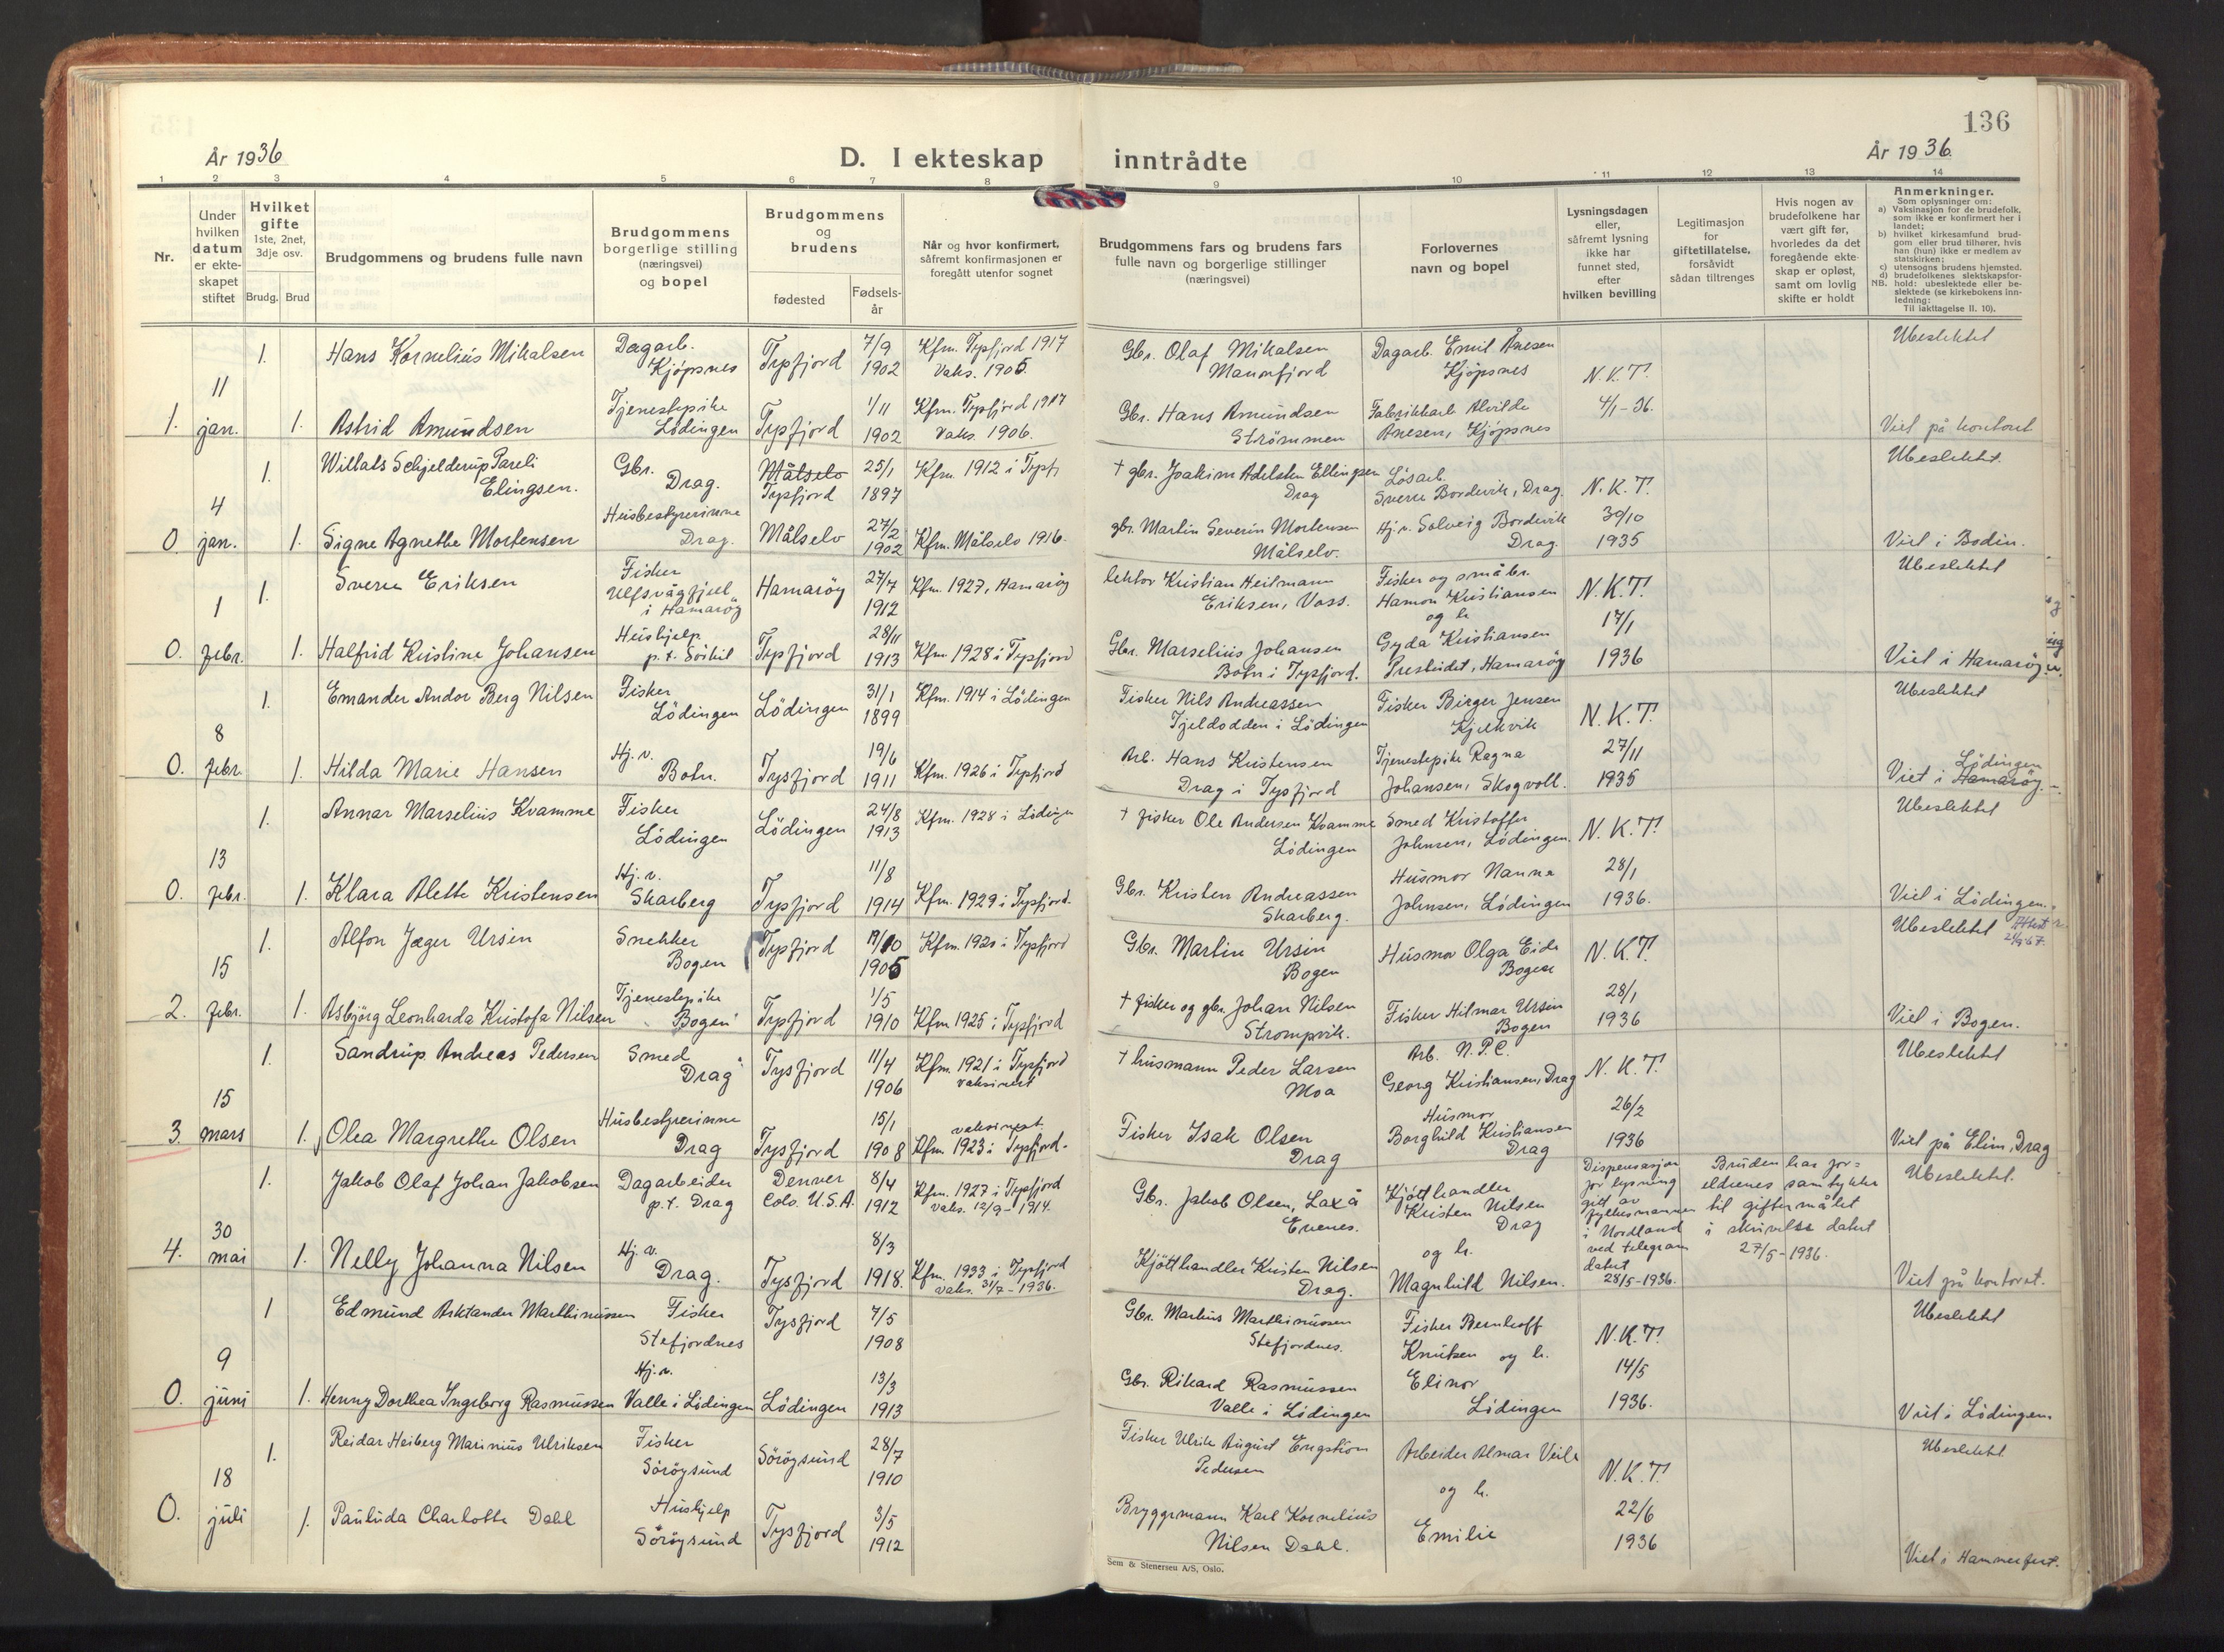 136
År 1936
D. I ekteskap inntrådte
År 1936.
1 2 3 4 5 6 7 8 9 10 11 12 13 14
Nr.
Under
hvilken
datum
er ekte-
skapet
stiftet
Hvilket
gifte
1ste, 2net,
3dje osv.
Brudg. Brud
Brudgommens og brudens fulle navn
Brudgommens
borgerlige stilling
(næringsvei)
og bopel
Brudgommens
og
brudens
fødested
Fødsels-
år
Når og hvor konfirmert,
såfremt konfirmasjonen er
foregått utenfor sognet
Brudgommens fars og brudens fars
fulle navn og borgerlige stillinger
(næringsvei)
Forlovernes
navn og bopel
Lysningsdagen
eller,
såfremt lysning
ikke har
funnet sted,
efter
hvilken bevilling
Legitimasjon
for
giftetillatelse,
forsåvidt
sådan tiltrenges
Hvis nogen av
brudefolkene har
vært gift før,
hvorledes da det
foregående ekte-
skap er opløst,
samt om lovlig
skifte er holdt
Anmerkninger.
Som oplysninger om:
a) Vaksinasjon for de brudefolk,
som ikke er konfirmert her i
landet;
b) hvilket kirkesamfund brud-
gom eller brud tilhører, hvis
han (hun) ikke er medlem av
statskirken;
c) utensogns brudens hjemsted.
d) brudefolkenes slektskapsfor-
NB. hold: ubeslektede eller be-
slektede (se kirkebokens inn-
ledning:
Til iakttagelse II. 10).
1. 11 jan.
1. Hans Kornelius Mikalsen
Dagarb.
Kjöpsnes
Tysfjord
7/9
1902
Kfm. Tysfjord 1917
Vaks. 1905.
Gbr. Olaf Mikalsen
Manonfjord
Dagarb. Emil Ånesen
Kjöpsnes
N.K.T.
4/1-36.
Ubeslektet
1. Astrid Amundsen
Tjenestepike
Lödingen
Tysfjord
1/11
1902
Kfm. Tysfjord 1917
Vaks. 1906.
Gbr. Hans Amundsen
Strömmen
Fabrikkarb. Alvilde
Anesen, Kjöpsnes
Viet på kontoret
0. 4 jan.
1. Willats Schjelderup Pareli
Elingsen.
Gbr.
Drag.
Målselv
Tysfjord
25/1
1897
Kfm. 1912 i Tysfj
† gbr. Joakim Adelsten Ellingsen
Drag
Løsarb.
Sverre Bordevik, Drag.
N.K.T.
30/10
1935
Ubeslektet.
1. Signe Agnethe Mortensen
Husbestyrerinne
Drag.
Målselv
27/2
1902
Kfm. Målselv 1916.
gbr. Martin Severin Mortensen
Målselv.
Hj.v. Solveig Bordevik
Drag
Viet i Bodin.
0. 1 febr.
1. Sverre Eriksen
Fisker
Ulfsvågfjel
i Hamaröy
Hamaröy
27/7
1912
Kfm. 1927, Hamaröy
lektor Kristian Heitmann
Eriksen, Voss.
Fisker og småbr.
Hamon Kristiansen
og h.
N.K.T.
17/1
1936
Ubeslektet
1. Halfrid Kristine Johansen
Hushjelp
p.t. Sörkil
Tysfjord
28/11
1913
Kfm. 1928 i Tysfjord
Gbr. Marselius Johansen
Botn i Tysfjord.
Gyda Kristiansen
Presteidet, Hamaröy
Viet i Hamaröy
0. 8 febr.
1. Emander Andor Berg Nilsen
Fisker
Lödingen
Lödingen
31/1
1899
Kfm. 1914 i Lödingen
Fisker Nils Andreassen
Tjeldodden i Lödingen
Fisker Birger Jensen
Kjelkvik
N.K.T.
27/11
1935
Ubeslektet
1. Hilda Marie Hansen
Hj.v.
Botn.
Tysfjord
19/6
1911
Kfm. 1926 i Tysfjord
Arb. Hans Kristensen
Drag i Tysfjord
Tjenestepike Ragna
Johansen, Skogvoll.
Lödingen
Viet i Hamaröy.
0. 13 febr.
1. Annar Marselius Kvamme
Fisker
Lödingen
Lödingen
24/8
1913
Kfm. 1928 i Lödingen
† fisker Ole Andersen Kvamme
Lödingen
Smed Kristoffer
Johnsen, Lödingen.
N.K.T.
28/1
1936.
Ubeslektet
1. Klara Alette Kristensen
Hj.v.
Skarberg
Tysfjord
11/8
1914
Kfm. 1929 i Tysfjord.
Gbr. Kristen Andreassen
Skarberg.
Husmor Nanna
Johnsen, Lödingen
Viet i Lödingen.
2. 15 febr.
1. Alfon Jæger Ursin
Snekker
Bogen
Tysfjord
19/10
1905
Kfm. 1920 i Tysfjord
Gbr. Martin Ursin
Bogen
Husmor Olga Eide
Bogen
N.K.T.
28/1
1936
Ubeslektet
1. Asbjörg Leonharda Kristofa Nilsen
Tjenestepike
Bogen
Tysfjord
1/5
1910
Kfm. 1925 i Tysfjord
† fisker og gbr. Johan Nilsen
Strompvik.
Fisker Hilmar Ursin
Bogen
Viet i Bogen.
3. 15 mars
1. Sandrup Andreas Pedersen
Smed
Drag
Tysfjord
11/4
1906
Kfm. 1921 i Tysfjord
vaksinert
† husmann Peder Larsen
Moa
Arb. N.P.C.
Georg Kristiansen, Drag
N.K.T.
26/2
1936
Ubeslektet
1. Olea Margrethe Olsen
Husbestyrerinne
Drag
Tysfjord
15/1
1908
vaksinert
Kfm. 1923 i Tysfjord.
Fisker Isak Olsen
Drag
Husmor
Borghild Kristiansen
Drag
Viet på Elim, Drag
4. 30 mai
1. Jakob Olaf Johan Jakobsen
Dagarbeider
p.t. Drag
Denver
Colo. U.S.A.
8/4
1912
Kfm. 1927 i Tysfjord
Vaks. 12/9-1914.
Gbr. Jakob Olsen, Laxå
Evenes.
Kjötthandler
Kristen Nilsen
Drag
og h.
Dispensasjon
for lysning
gitt av
fylkesmannen
i Nordland
ved telegram
datert
28/5-1936.
Bruden har for-
eldrenes samtykke
til giftermålet
i skrivelse datert
27/5-1936.
Ubeslektet.
1. Nelly Johanna Nilsen
Hj.v.
Drag.
Tysfjord
8/3
1918.
Kfm. 1933 i Tysfjord
Vaks. 31/7-1936.
Kjötthandler Kristen Nilsen
Drag.
Magnhild Nilsen.
Viet på kontoret.
0. 9 juni
1 Edmund Arktander Marthinussen
Fisker
Stefjordnes
Tysfjord
7/5
1908
Gbr. Markus Marthinussen
Stefjordnes.
Fisker Bernhoff
Knutsen og h.
N.K.T.
14/5
1936.
Ubeslektet
1. Henny Dorthea Ingeborg Rasmussen
Hj.v.
Valle i Lödingen
Lödingen
13/3
1913
Gbr. Rikard Rasmussen
Valle i Lödingen
Elinor
Lödingen
Viet i Lödingen.
0. 18 juli
1. Reidar Heiberg Marinius Ulriksen
Fisker
Söröysund
Söröysund
28/7
1910
Fisker Ulrik August Engström
Pedersen
Arbeider Almar Veile
og h.
N.K.T.
22/6
1936
Ubeslektet
1. Paulida Charlotte Dahl
Hushjelp
Söröysund
Tysfjord
3/5
1912
Bryggemann Karl Kornelius
Nilsen Dahl.
Emilie
Viet i Hammerfest.
Sem & Stenersen A/S, Oslo.